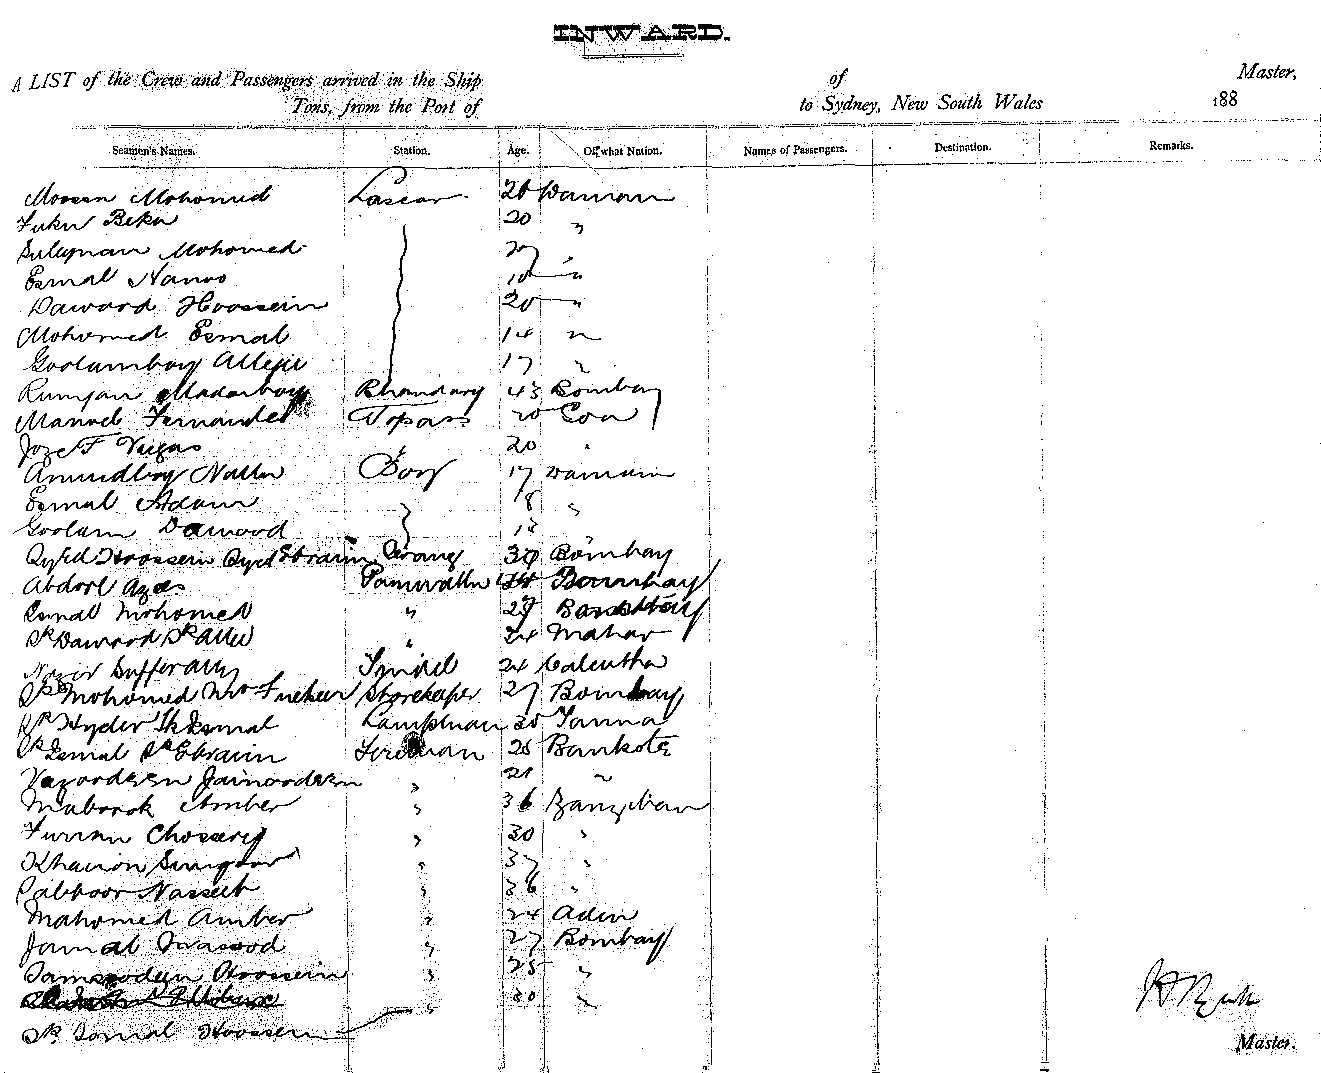 INWARD.
A LIST of the Crew and Passengers arrived in the Ship of Master,
Tons, from the Port of to Sydney, New South Wales 188
Seamen's Names. Station. Age. Of what Nation. Names of Passengers. Destination. Remarks.
Moosen Mohomed Lascar 28 Damaun
Fukir Beka 20 "
Sulyman Mohomed 27
Esmal Nanoo 18 "
Dawood Hoossein 20 "
Mohomed Esmal 14 "
Goolamboy Alleji 17 "
Rumjan Madarboy Bhandary 43 Bombay
Manuel Fernandel Topass 20 Goa
Joze F Viegas 20 "
Boy 17 Damaun
Esmal Adam 18 "
Goolam Dawood 18 "
Syed Hoossein Syed Ebraim Serang 30 Bombay
Abdool Azes Bombay
Esmal Mohomed " 29
Sk Dawood Sk Allee " 24
Sufferally Tindel 24 Calcutta
Sk Mohomed Storekeeper 27 Bombay
Sk Hyder Sk Esmal Lampman 30 Tanna
Sk Esmal Sk Ebraim Fireman 25 Bankote
Jainoodeen " 21 "
Mabrook Amber " 36 Zanziban
" 30 "
" 37 "
Nasseeb " 36 "
Mahomed Amber " 24 Aden
Jamal " 27 Bombay
Hoossein " 25 "
30 "
Sk Esmal Hoossein
Master.